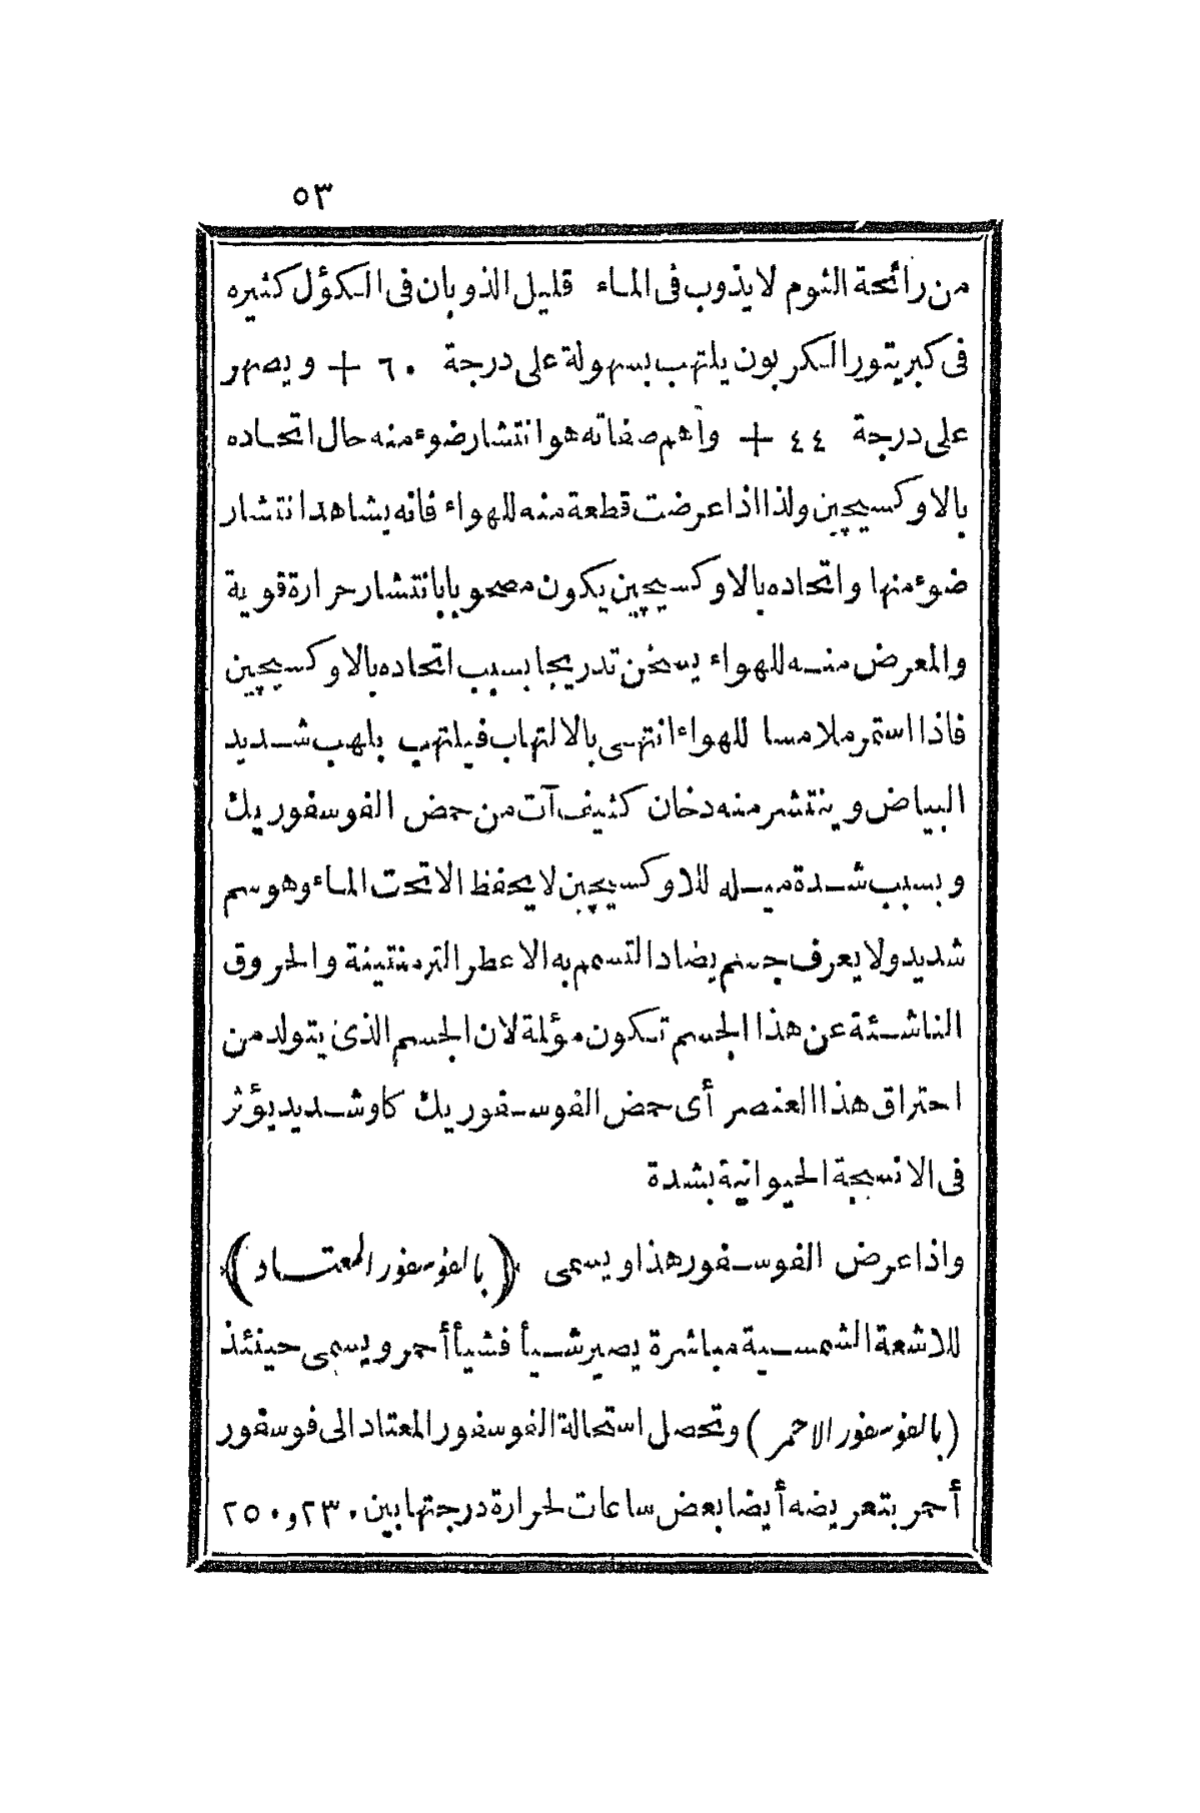 ٥٣
من رائحة الثوم لا يذوب فى الماء قليل الذوبان فى الكؤل كثيره
فى كبريتور الكربون يلتهب بسهولة على درجة ٦٠ + ويصهر
على درجة ٤٤ + وأهم صفاته هو انتشار ضوء منه حال اتحاده
بالاوكسيچين ولذا اذا عرضت قطعة منه للهواء فانه يشاهد انتشار
ضوء منها واتحاده بالاوكسيچين يكون مصحوبا بانتشار حرارة قوية
والمعرض منه للهواء يسخن تدريجا بسبب اتحاده بالاوكسيچين
فاذا استمر ملامسا للهواء انتهى بالالتهاب فيلتهب بلهب شديد
البياض وينتشر منه دخان كثيف آت من حمض الفوسفوريك
وبسبب شدة ميله للاوكسيچين لا يحفظ الا تحت الماء وهو سم
شديد ولا يعرف جسم يضاد التسمم به الا عطر الترمنتينة والحروق
الناشئة عن هذا الجسم تكون مؤلمة لان الجسم الذى يتولد من
احتراق هذا العنصر أى حمض الفوسفوريك كاو شديد يؤثر
فى الانسجة الحيوانية بشدة
واذا عرض الفوسفور هذا ويسمى (بالفوسفور المعتاد)
للاشعة الشمسية مباشرة يصير شيأ فشيأ أحمر ويسمى حينئذ
(بالفوسفور الاحمر) وتحصل استحالة الفوسفور المعتاد الى فوسفور
أحمر بتعريضه أيضا بعض ساعات لحرارة درجتها بين ٢٣٠ و٢٥٠